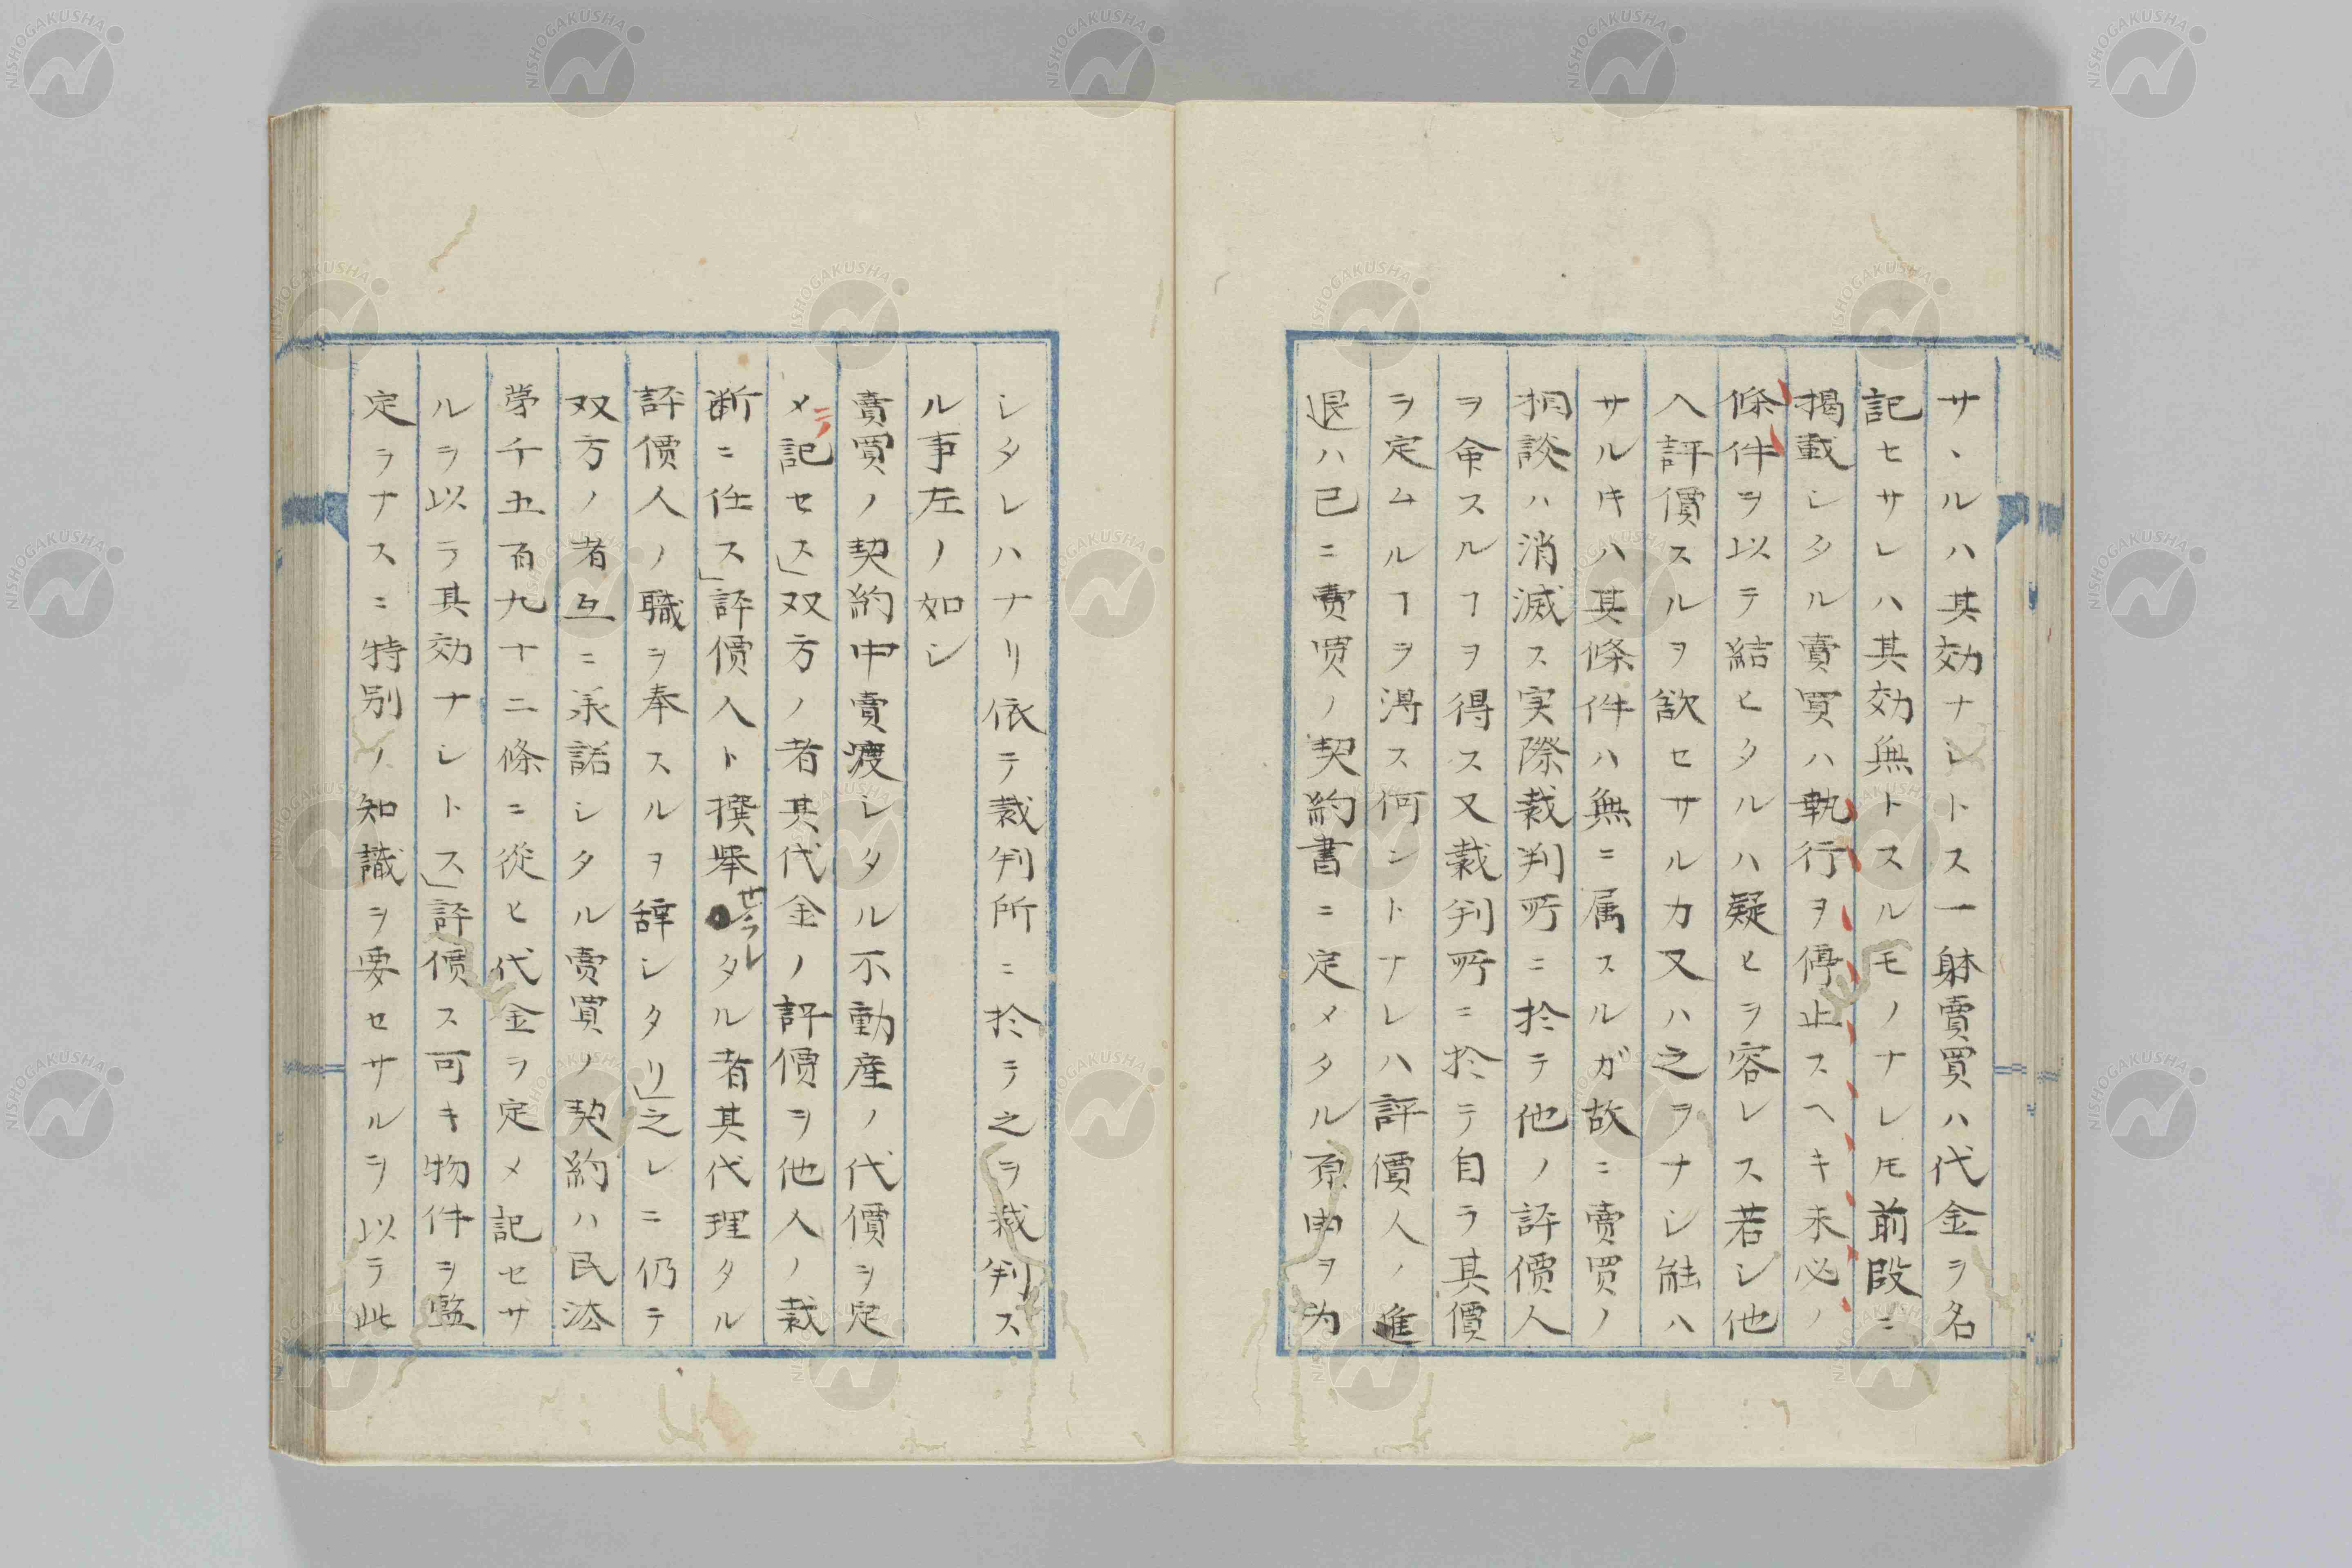 サヽルハ其効ナシトス一躰賣買ハ代金ヲ名
記セサレハ其効無トスルモノナレ𪜈前段ニ
掲載シタル賣買ハ執行ヲ停止スヘキ未必ノ
條件ヲ以テ結ヒタルハ疑ヒヲ容レス若シ他
人評價スルヲ欲セサルカ又ハ之ヲナシ能ハ
サルキハ其條件ハ無ニ属スルガ故ニ賣買ノ
相談ハ消滅ス実際裁判所ニ於テ他ノ評價人
ヲ命スルヿヲ得ス又裁判所ニ於テ自ラ其價
ヲ定ムルヿヲ淂ス何ントナレハ評價人ノ進
退ハ已ニ賣買ノ契約書ニ定メタル原由ヲ為
シタレハナリ依テ裁判所ニ於テ之ヲ裁判ス
ル事左ノ如シ
賣買ノ契約中賣渡シタル不動産ノ代價ヲ定
メニラ記セス」双方ノ者其代金ノ評價ヲ他人ノ裁
断ニ任ス」評價人ト撰挙セラレタル者其代理タル
評價人ノ職ヲ奉スルヲ辞シタリ」之レニ仍テ
双方ノ者互ニ承諾シタル賣買ノ契約ハ民法
第千五百九十二條ニ従ヒ代金ヲ定メ記セサ
ルヲ以テ其効ナシトス」評價ス可キ物件ヲ監
定ヲナスニ特別ノ知識ヲ要セサルヲ以テ此
NISHOGAKUSHA